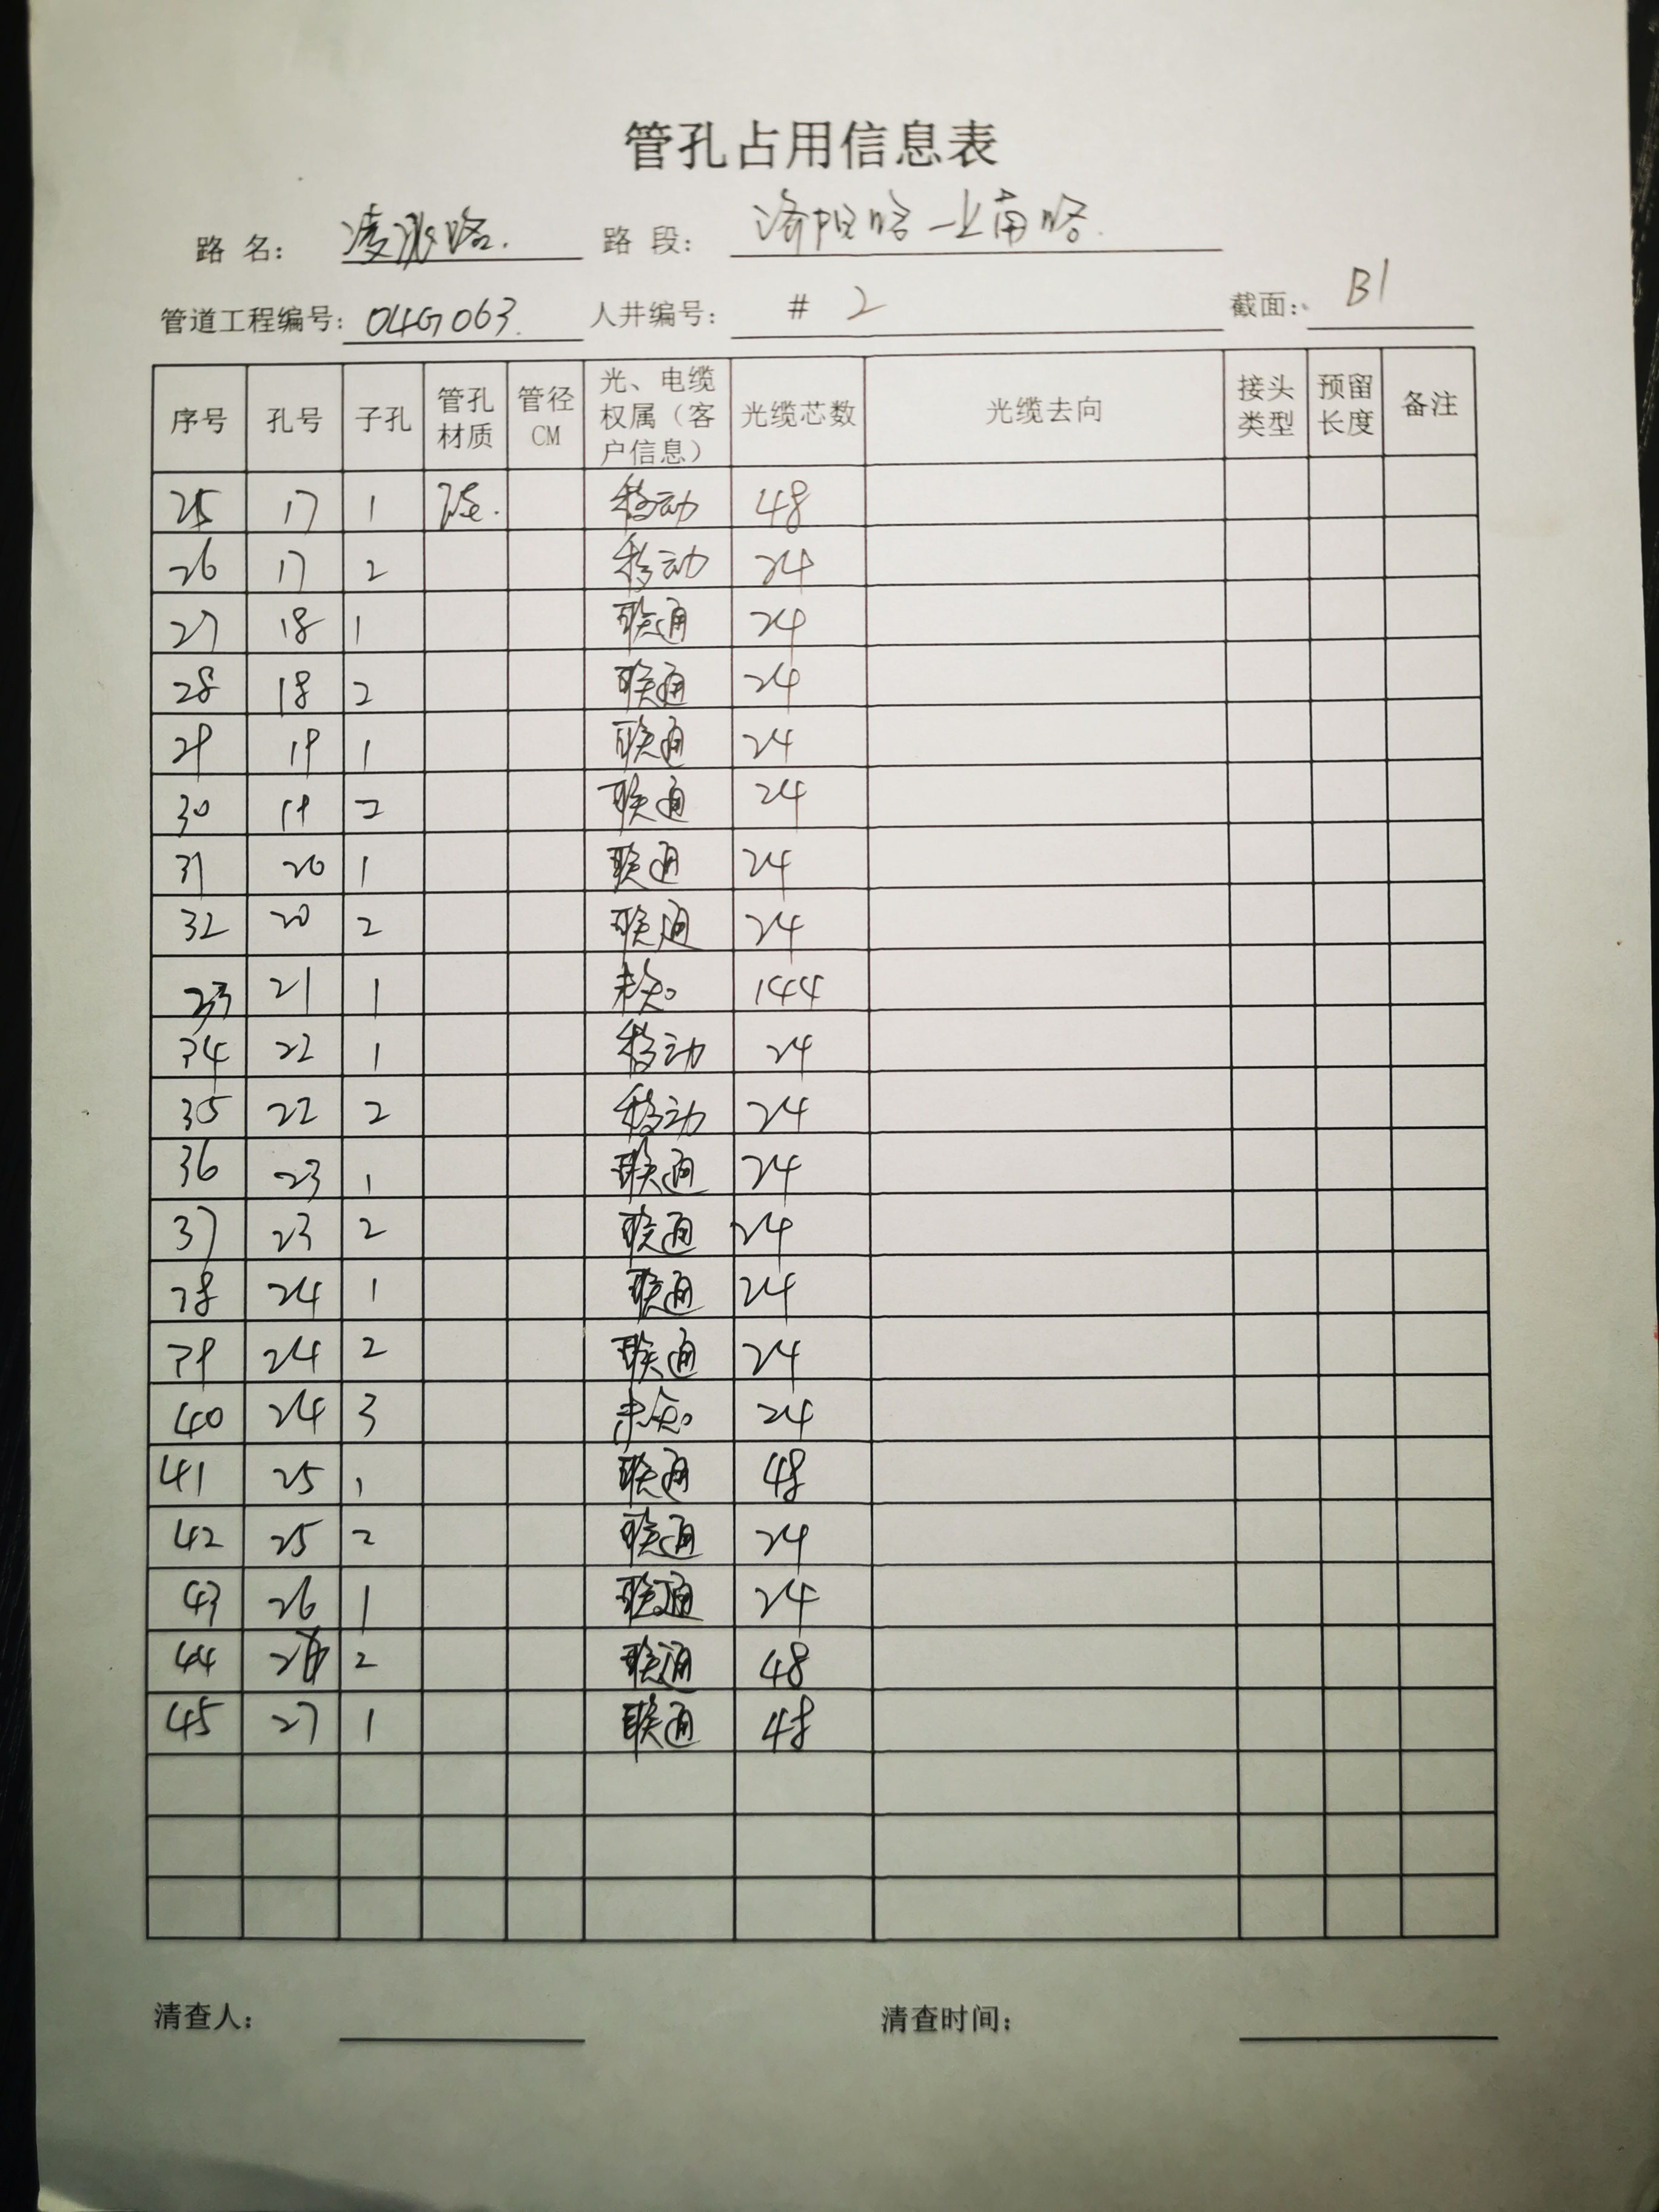 管孔占用信息表
路 名： 凌兆路. 路 段： 洛阳路—上南路.
管道工程编号： 04G063. 人井编号： # 2 截面： B1
序号 孔号 子孔 管孔材质 管径CM 光、电缆权属（客户信息） 光缆芯数 光缆去向 接头类型 预留长度 备注
25 17 1 移动 48
26 17 2 移动 24
27 18 1 联通 24
28 18 2 联通 24
29 19 1 联通 24
30 19 2 联通 24
31 20 1 联通 24
32 20 2 联通 24
33 21 1 未知 144
34 22 1 移动 24
35 22 2 移动 24
36 23 1 联通 24
37 23 2 联通 24
38 24 1 联通 24
39 24 2 联通 24
40 24 3 未知 24
41 25 1 联通 48
42 25 2 联通 24
43 26 1 联通 24
44 26 2 联通 48
45 27 1 联通 48
清查人： 清查时间：